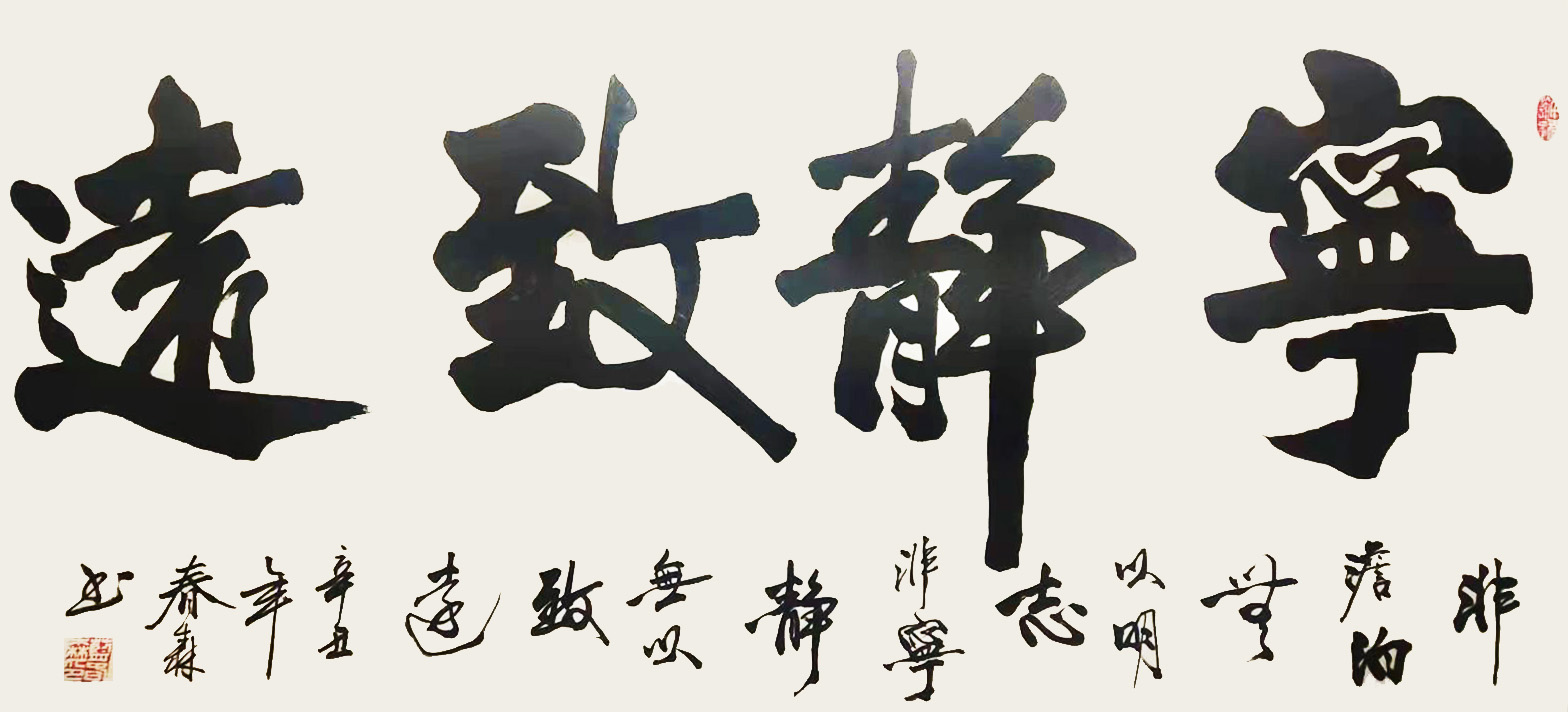 寧靜致遠
非澹泊無以明志非寧靜無以致遠辛丑年春森书